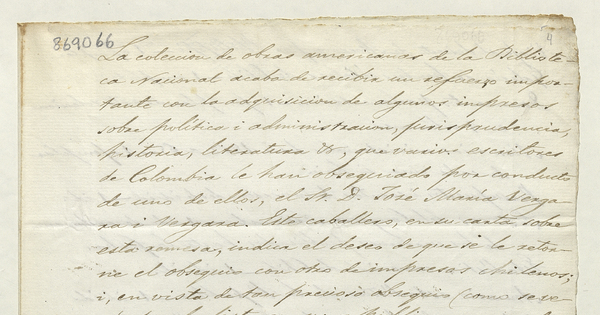 869066
4
La coleccion de obras americanas de la Bibliote-
ca Nacional acaba de recibir un refuerzo impor-
tante con la adquisicion de algunos impresos
sobre política i administracion, jurisprudencia,
historia, literatura &, que varios escritores
de Colombia le han obsequiado por conducto
de uno de ellos, el Sr. D. José María Verga-
ra i Vergara. Este caballero, en su carta sobre
esta remesa, indica el deseo de que se le retor-
ne el obsequio con otro de impresos chilenos;
i, en vista de tan precioso obsequio (como se ve-